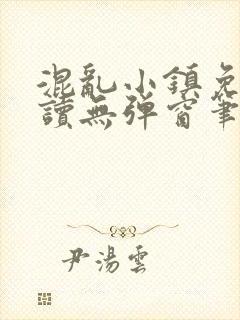 混亂小鎮免
讀無彈窗筆
尹湯雲